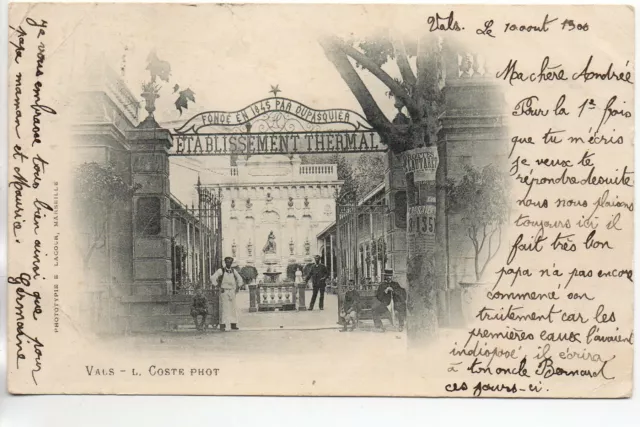 Vals. Le 10 aout 1900
Ma chère Andrée
Pour la 1ère fois
que tu m'écris
je veux te
répondre desuite
nous nous plaisons
toujours ici il
fait très bon
papa n'a pas encore
commencé son
traitement car les
premières eaux l'avaient
indisposé, il écrira
à ton oncle Bernard
ces jours-ci.
Je vous embrasse tous bien ainsi que pour
papa maman et Maurice.
Germaine
FONDÉ EN 1845 PAR DUPASQUIER
ETABLISSEMENT THERMAL
PHOTOTYPIE E. LACOUR, MARSEILLE
VALS - L. COSTE PHOT